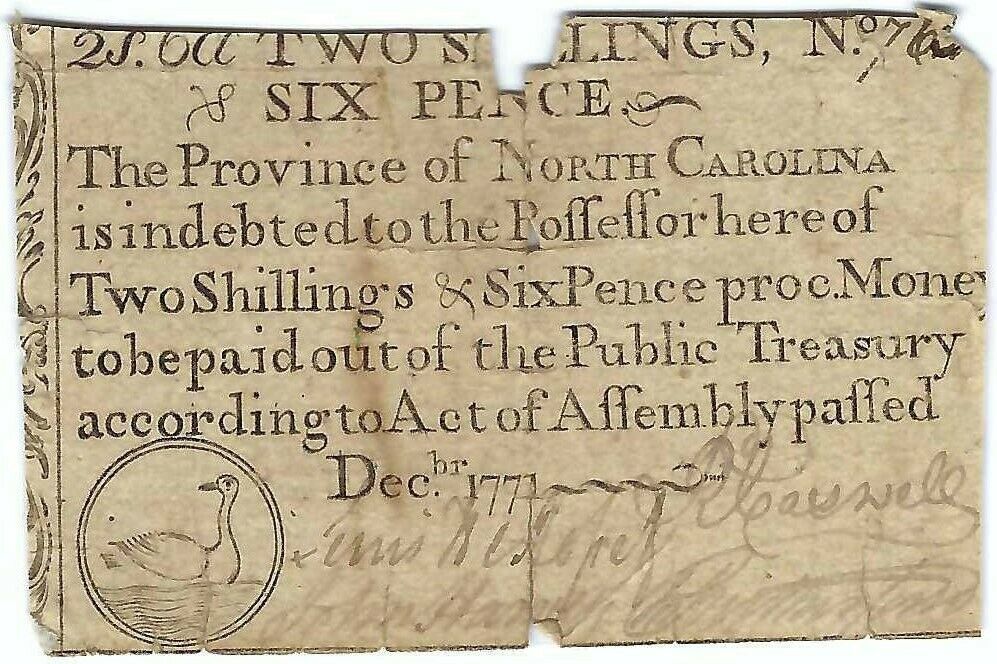 2S. 6d TWO S LLINGS, N.º 76
& SIX PENCE.
The Province of NORTH CAROLINA
is indebted to the Poſſeſſor here of
Two Shillings & Six Pence proc. Money
to be paid out of the Public Treasury
according to Act of Aſſembly paſſed
Dec.br 1771
R Caswell
Lewis
John